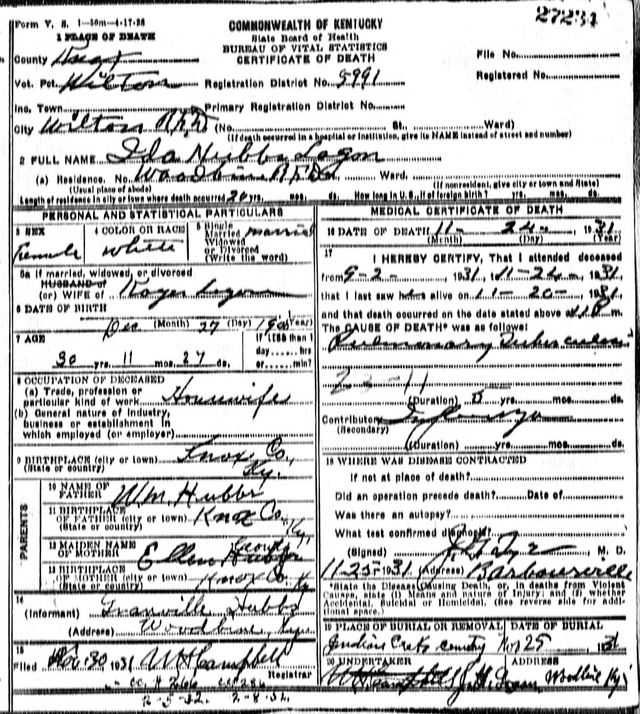 Form V. S. 1-30m-4-17-28
27231
1 PLACE OF DEATH
COMMONWEALTH OF KENTUCKY
State Board of Health
BUREAU OF VITAL STATISTICS
CERTIFICATE OF DEATH
County Knox
File No.
Vot. Pct. Wilton
Registration District No. 5991
Registered No.
Inc. Town
Primary Registration District No.
City Wilton R.F.D. (No. St. Ward)
(If death occurred in a hospital or institution, give its NAME instead of street and number)
2 FULL NAME Ida Hubbs Logan
(a) Residence. No. Woodbine R.F.D. Ward.
(Usual place of abode) (If nonresident, give city or town and State)
Length of residence in city or town where death occurred 20 yrs. mos. ds. How long in U. S., if of foreign birth? yrs. mos. ds.
PERSONAL AND STATISTICAL PARTICULARS
3 SEX Female
4 COLOR OR RACE white
5 Single Married Widowed or Divorced (Write the word) married
5a If married, widowed, or divorced
HUSBAND of
(or) WIFE of Roger Logan
6 DATE OF BIRTH
Dec (Month) 27 (Day) (Year)
7 AGE
30 yrs. 11 mos. 27 ds.
If LESS than 1 day hrs or min?
8 OCCUPATION OF DECEASED
(a) Trade, profession or particular kind of work Housewife
(b) General nature of industry, business or establishment in which employed (or employer)
9 BIRTHPLACE (city or town) Knox Co, Ky.
(State or country)
PARENTS
10 NAME OF FATHER Wm. Hubbs
11 BIRTHPLACE OF FATHER (city or town) Knox Co, Ky,
(State or country)
12 MAIDEN NAME OF MOTHER Ellen
13 BIRTHPLACE OF MOTHER (city or town) Knox Co. Ky
(State or country)
14
(Informant) Granville Hubbs
(Address) Woodbine, Kye
15
Filed Nov. 30 1931 W H Campbell
Registrar
2-5-32. 2-8-32.
MEDICAL CERTIFICATE OF DEATH
16 DATE OF DEATH 11- 24- 1931
(Month) (Day) (Year)
17
I HEREBY CERTIFY, That I attended deceased
from 9-2- 1931, 11-24- 1931
that I last saw her alive on 11-20- 1931,
and that death occurred on the date stated above at m.
The CAUSE OF DEATH* was as follows:
Pulmonary Tuberculosis
(Duration) yrs. mos. ds.
Contributory Influenza
(Secondary)
(Duration) yrs. mos. ds.
18 WHERE WAS DISEASE CONTRACTED
If not at place of death?
Did an operation precede death? Date of
Was there an autopsy?
What test confirmed diagnosis?
(Signed) M. D.
11-25-1931 (Address) Barbourville
*State the Disease Causing Death, in deaths from Violent Causes, state (1) Means and nature of Injury; and (2) whether Accidental, Suicidal or Homicidal. (See reverse side for additional space.)
19 PLACE OF BURIAL OR REMOVAL DATE OF BURIAL
Indian Creek Nov 25 1931
20 UNDERTAKER ADDRESS
W H Campbell Woodbine Ky